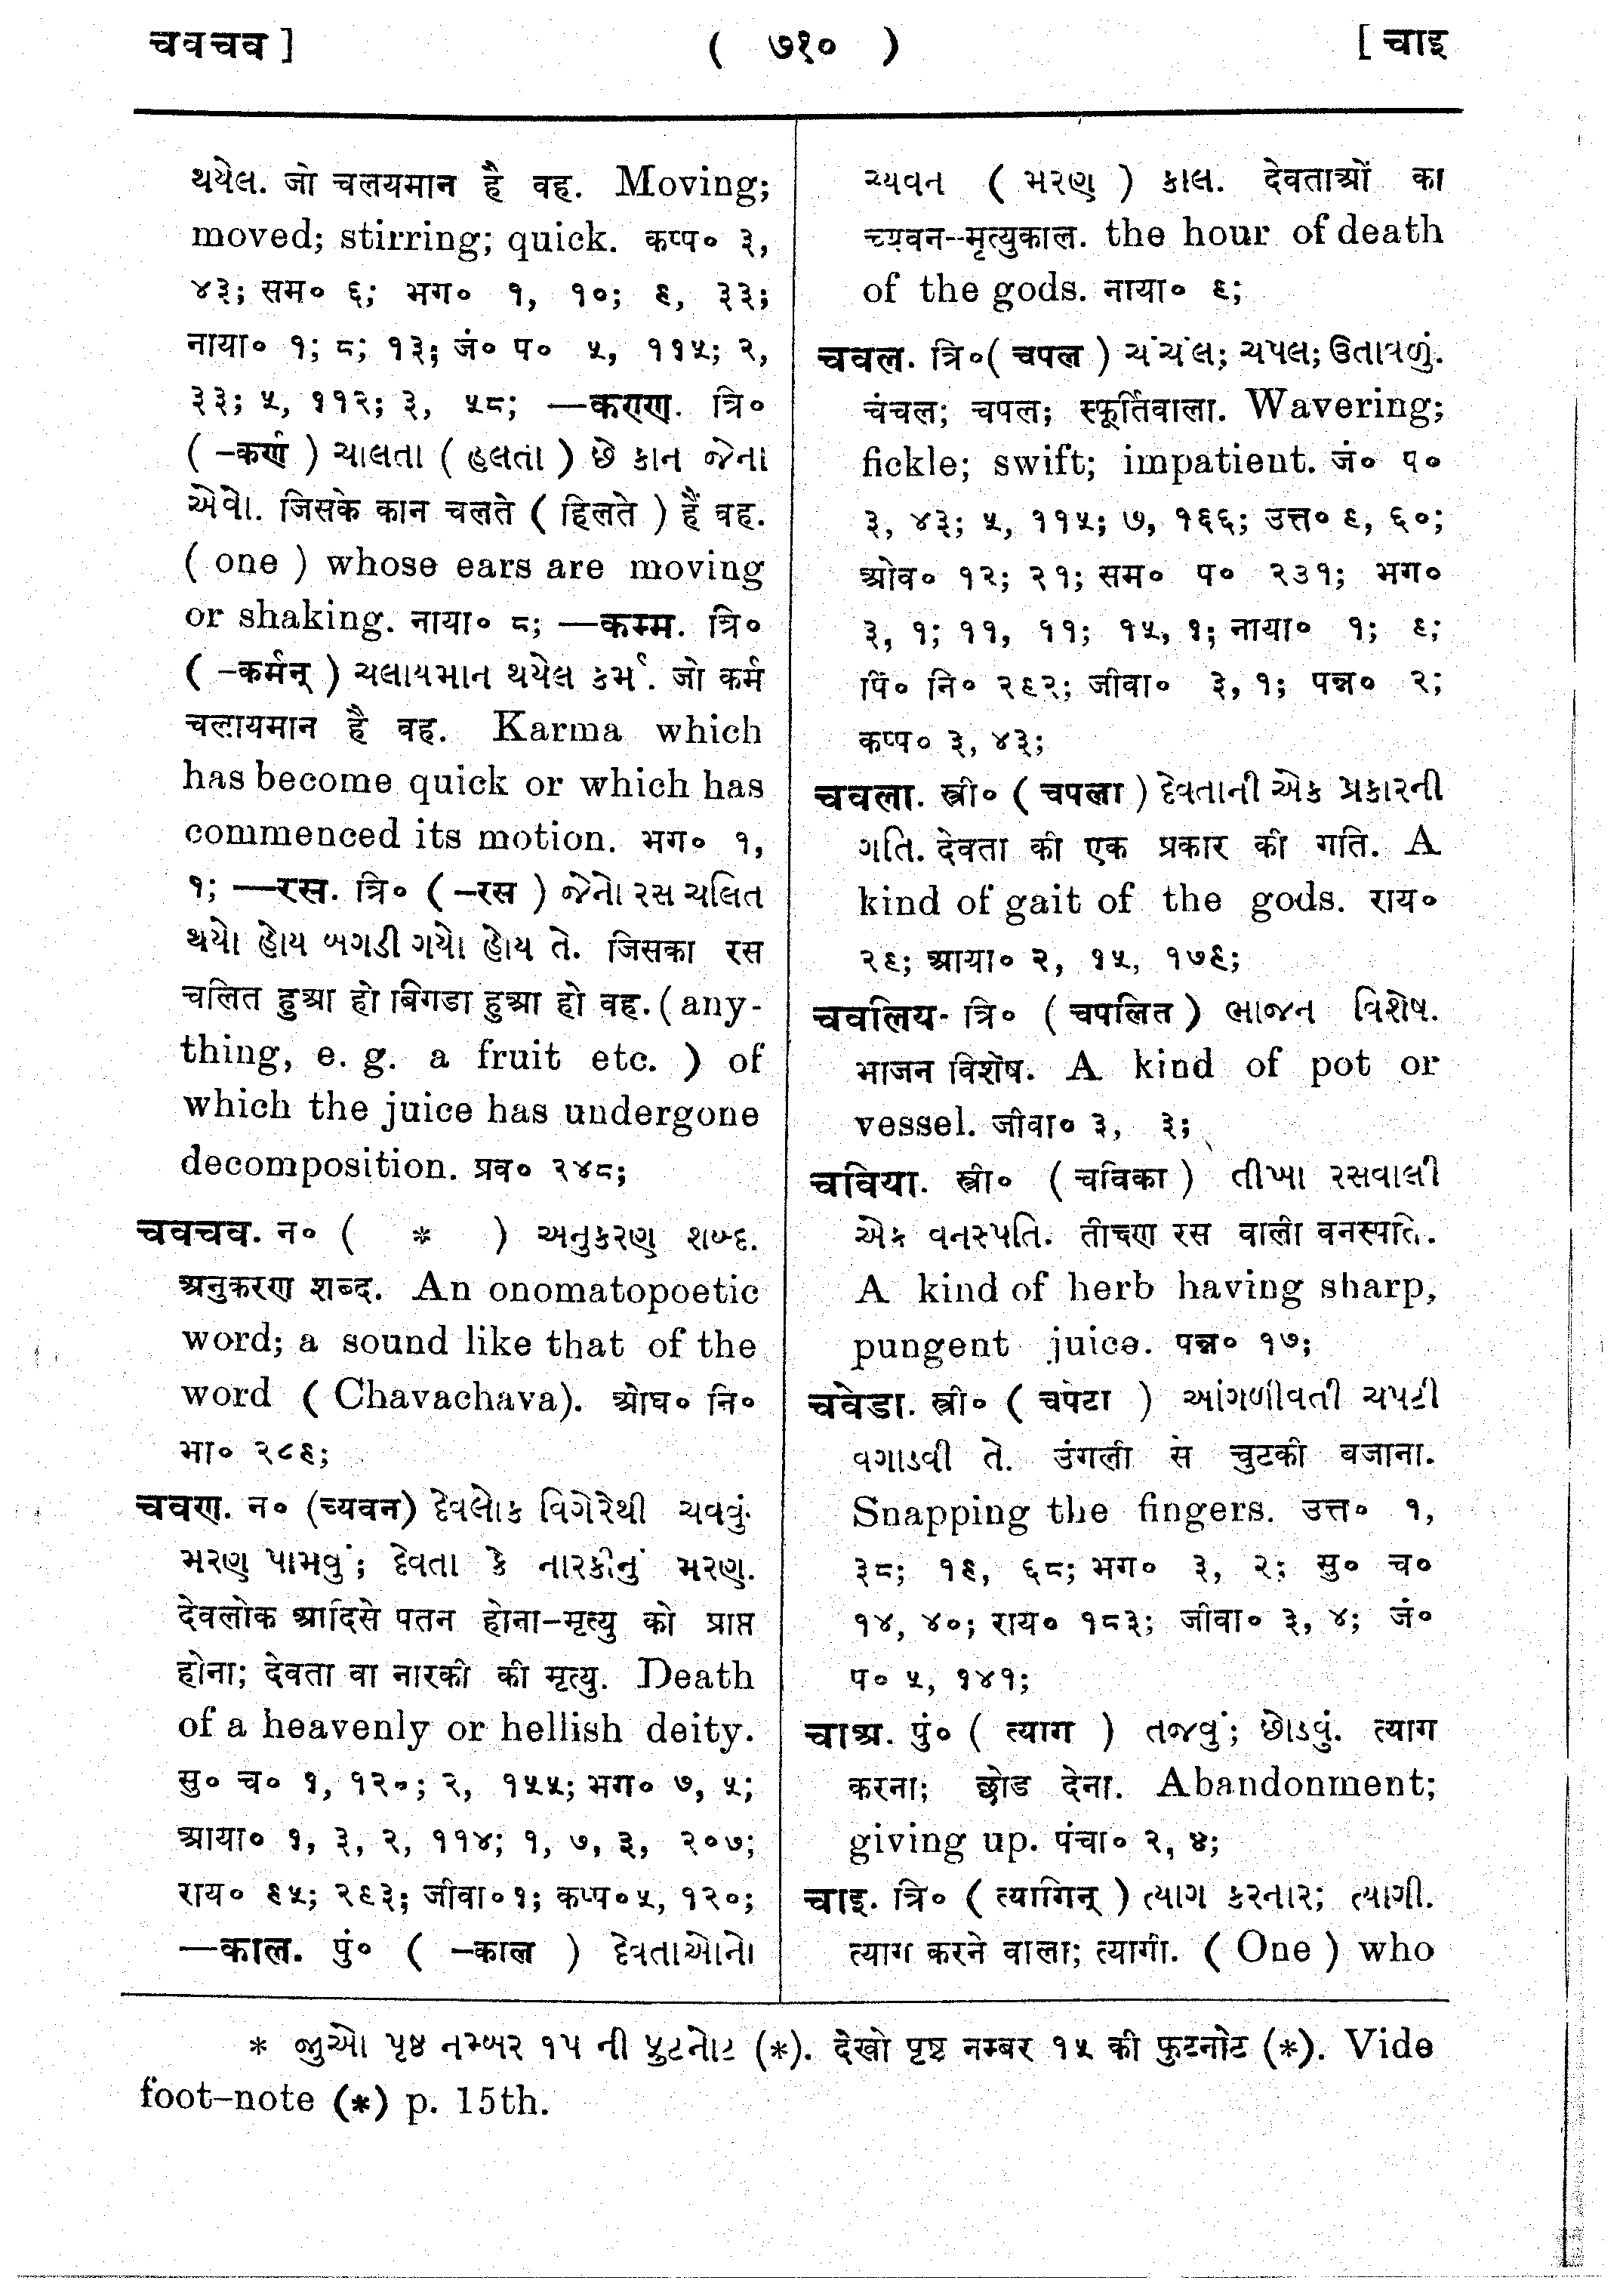 चवचव ]
( ७१० )
[ चाइ
થયેલ. जो चलयमान है वह. Moving;
moved; stirring; quick. कप्प० ३,
४३; सम० ६; भग० १, १०; ६, ३३;
नाया० १; ८; १३; जं० प० ५, ११५; २,
३३; ५, ११२; ३, ५८; —करण्ण. त्रि०
( -कर्ण ) ચાલતા ( હલતા ) છે કાન જેના
એવો. जिसके कान चलते ( हिलते ) हैं वह.
( one ) whose ears are moving
or shaking. नाया० ८; —कम्म. त्रि०
( -कर्मन् ) ચલાયમાન થયેલ કર્મ. जो कर्म
चलायमान है वह. Karma which
has become quick or which has
commenced its motion. भग० १,
१; —रस. त्रि० ( -रस ) જેનો રસ ચલિત
થયો હોય બગડી ગયો હોય તે. जिसका रस
चलित हुआ हो बिगडा हुआ हो वह. ( any-
thing, e. g. a fruit etc. ) of
which the juice has undergone
decomposition. प्रव० २४८;
चवचव. न० ( * ) અનુકરણ શબ્દ.
अनुकरण शब्द. An onomatopoetic
word; a sound like that of the
word ( Chavachava). ओघ० नि०
भा० २८६;
चवण. न० (च्यवन) દેવલોક વિગેરેથી ચવવું.
મરણ પામવું; દેવતા કે નારકીનું મરણ.
देवलोक आदिसे पतन होना-मृत्यु को प्राप्त
होना; देवता वा नारकी की मृत्यु. Death
of a heavenly or hellish deity.
सु० च० १, १२०; २, १५५; भग० ७, ५;
आया० १, ३, २, ११४; १, ७, ३, २०७;
राय० ६५; २६३; जीवा० १; कप्प० ५, १२०;
—काल. पुं० ( -काल ) દેવતાઓનો
ચ્યવન ( મરણ ) કાલ. देवताओं का
च्यवन--मृत्युकाल. the hour of death
of the gods. नाया० ६;
चवल. त्रि० ( चपल ) ચંચલ; ચપલ; ઉતાવળું.
चंचल; चपल; स्फूर्तिवाला. Wavering;
fickle; swift; impatient. जं० प०
३, ४३; ५, ११५; ७, १६६; उत्त० ६, ६०;
ओव० १२; २१; सम० प० २३१; भग०
३, १; ११, ११; १५, १; नाया० १; ६;
पिं० नि० २६२; जीवा० ३, १; पन्न० २;
कप्प० ३, ४३;
चवला. स्त्री० ( चपला ) દેવતાની એક પ્રકારની
ગતિ. देवता की एक प्रकार की गति. A
kind of gait of the gods. राय०
२६; आया० २, १५, १७६;
चवलिय- त्रि० ( चपलित ) ભાજન વિશેષ.
भाजन विशेष. A kind of pot or
vessel. जीवा० ३, ३;
चविया. स्त्री० ( चविका ) તીખા રસવાલી
એક વનસ્પતિ. तीक्ष्ण रस वाली वनस्पति.
A kind of herb having sharp,
pungent juice. पन्न० १७;
चवेडा. स्त्री० ( चपेटा ) આંગળીવતી ચપટી
વગાડવી તે. उंगली से चुटकी बजाना.
Snapping the fingers. उत्त० १,
३८; १६, ६८; भग० ३, २; सु० च०
१४, ४०; राय० १८३; जीवा० ३, ४; जं०
प० ५, १४१;
चाअ. पुं० ( त्याग ) તજવું; છોડવું. त्याग
करना; छोड देना. Abandonment;
giving up. पंचा० २, ४;
चाइ. त्रि० ( त्यागिन् ) ત્યાગ કરનાર; ત્યાગી.
त्याग करने वाला; त्यागी. ( One ) who
* જુઓ પૃષ્ઠ નમ્બર ૧૫ ની ફુટનોટ (*). देखो पृष्ठ नम्बर १५ की फुटनोट (*). Vide
foot-note (*) p. 15th.